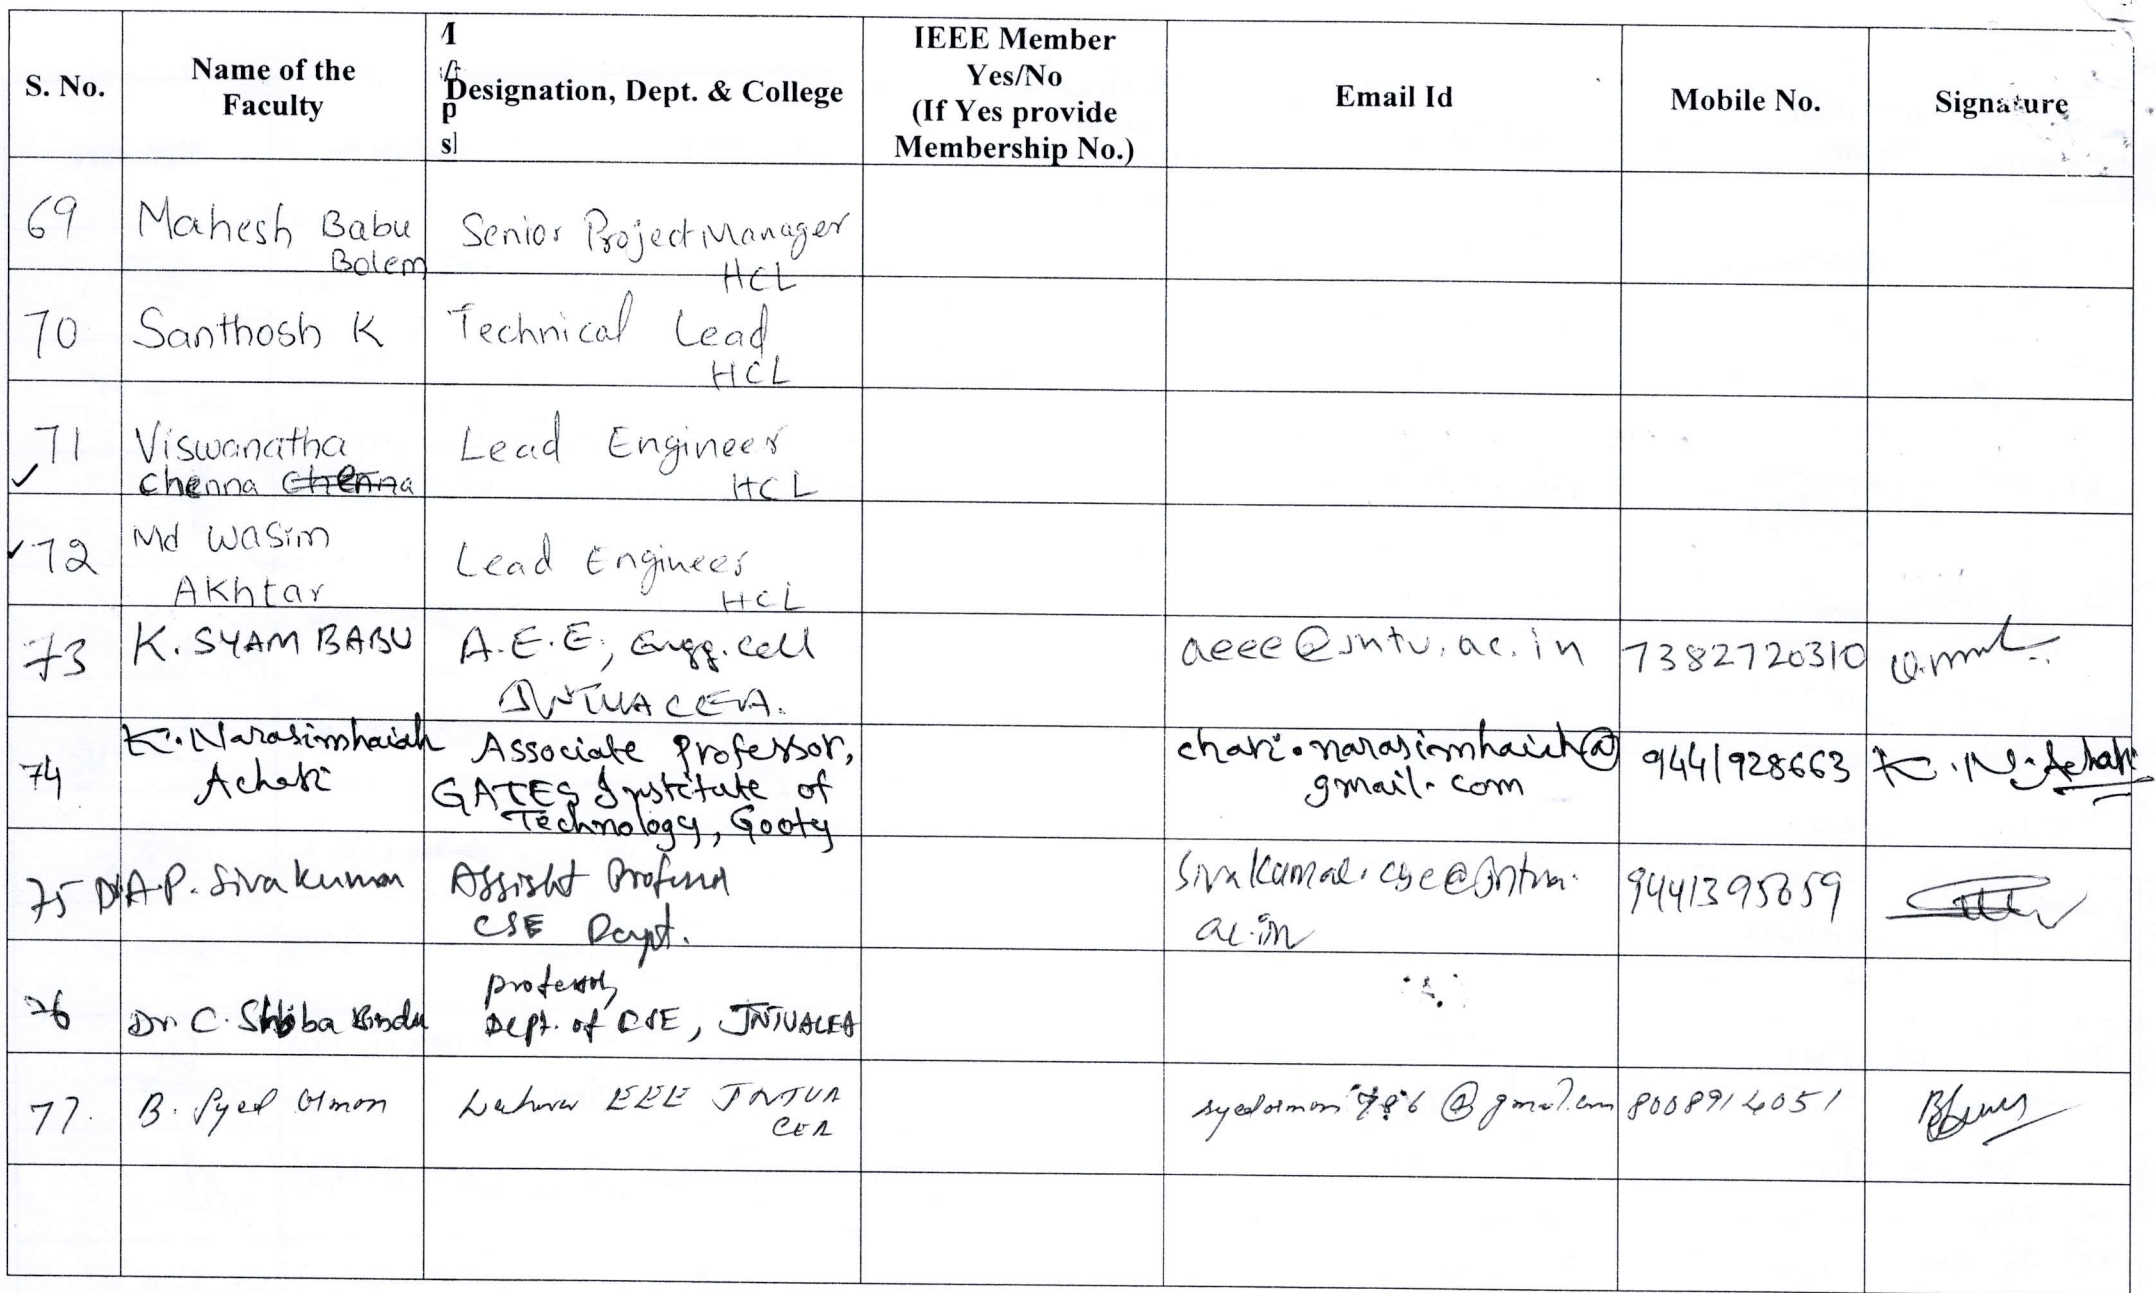 S. No.
Name of the
Faculty
Designation, Dept. & College
IEEE Member
Yes/No
(If Yes provide
Membership No.)
Email Id
Mobile No.
Signature
69
Mahesh Babu
Bolem
Senior Project Manager
HCL
70
Santhosh K
Technical Lead
HCL
71
Viswanatha
chenna Chenna
Lead Engineer
HCL
72
Md Wasim
Akhtar
Lead Engineer
HCL
73
K. SYAM BABU
A.E.E, Engg. cell
JNTUACEA.
aeee@jntu.ac.in
7382720310
74
K. Narasimhaiah
Achari
Associate Professor,
GATES Institute of
Technology, Gooty
chari.narasimhaiah@
gmail.com
9441928663
K. N. Achari
75
Dr A.P. Siva kumar
CSE Dept.
sivakumar.cse@jntua.
ac.in
76
Dr. C. Shoba Bindu
professor,
Dept. of CSE, JNTUACEA
77.
B. Syed
EEE JNTUA
CEA
8008914051